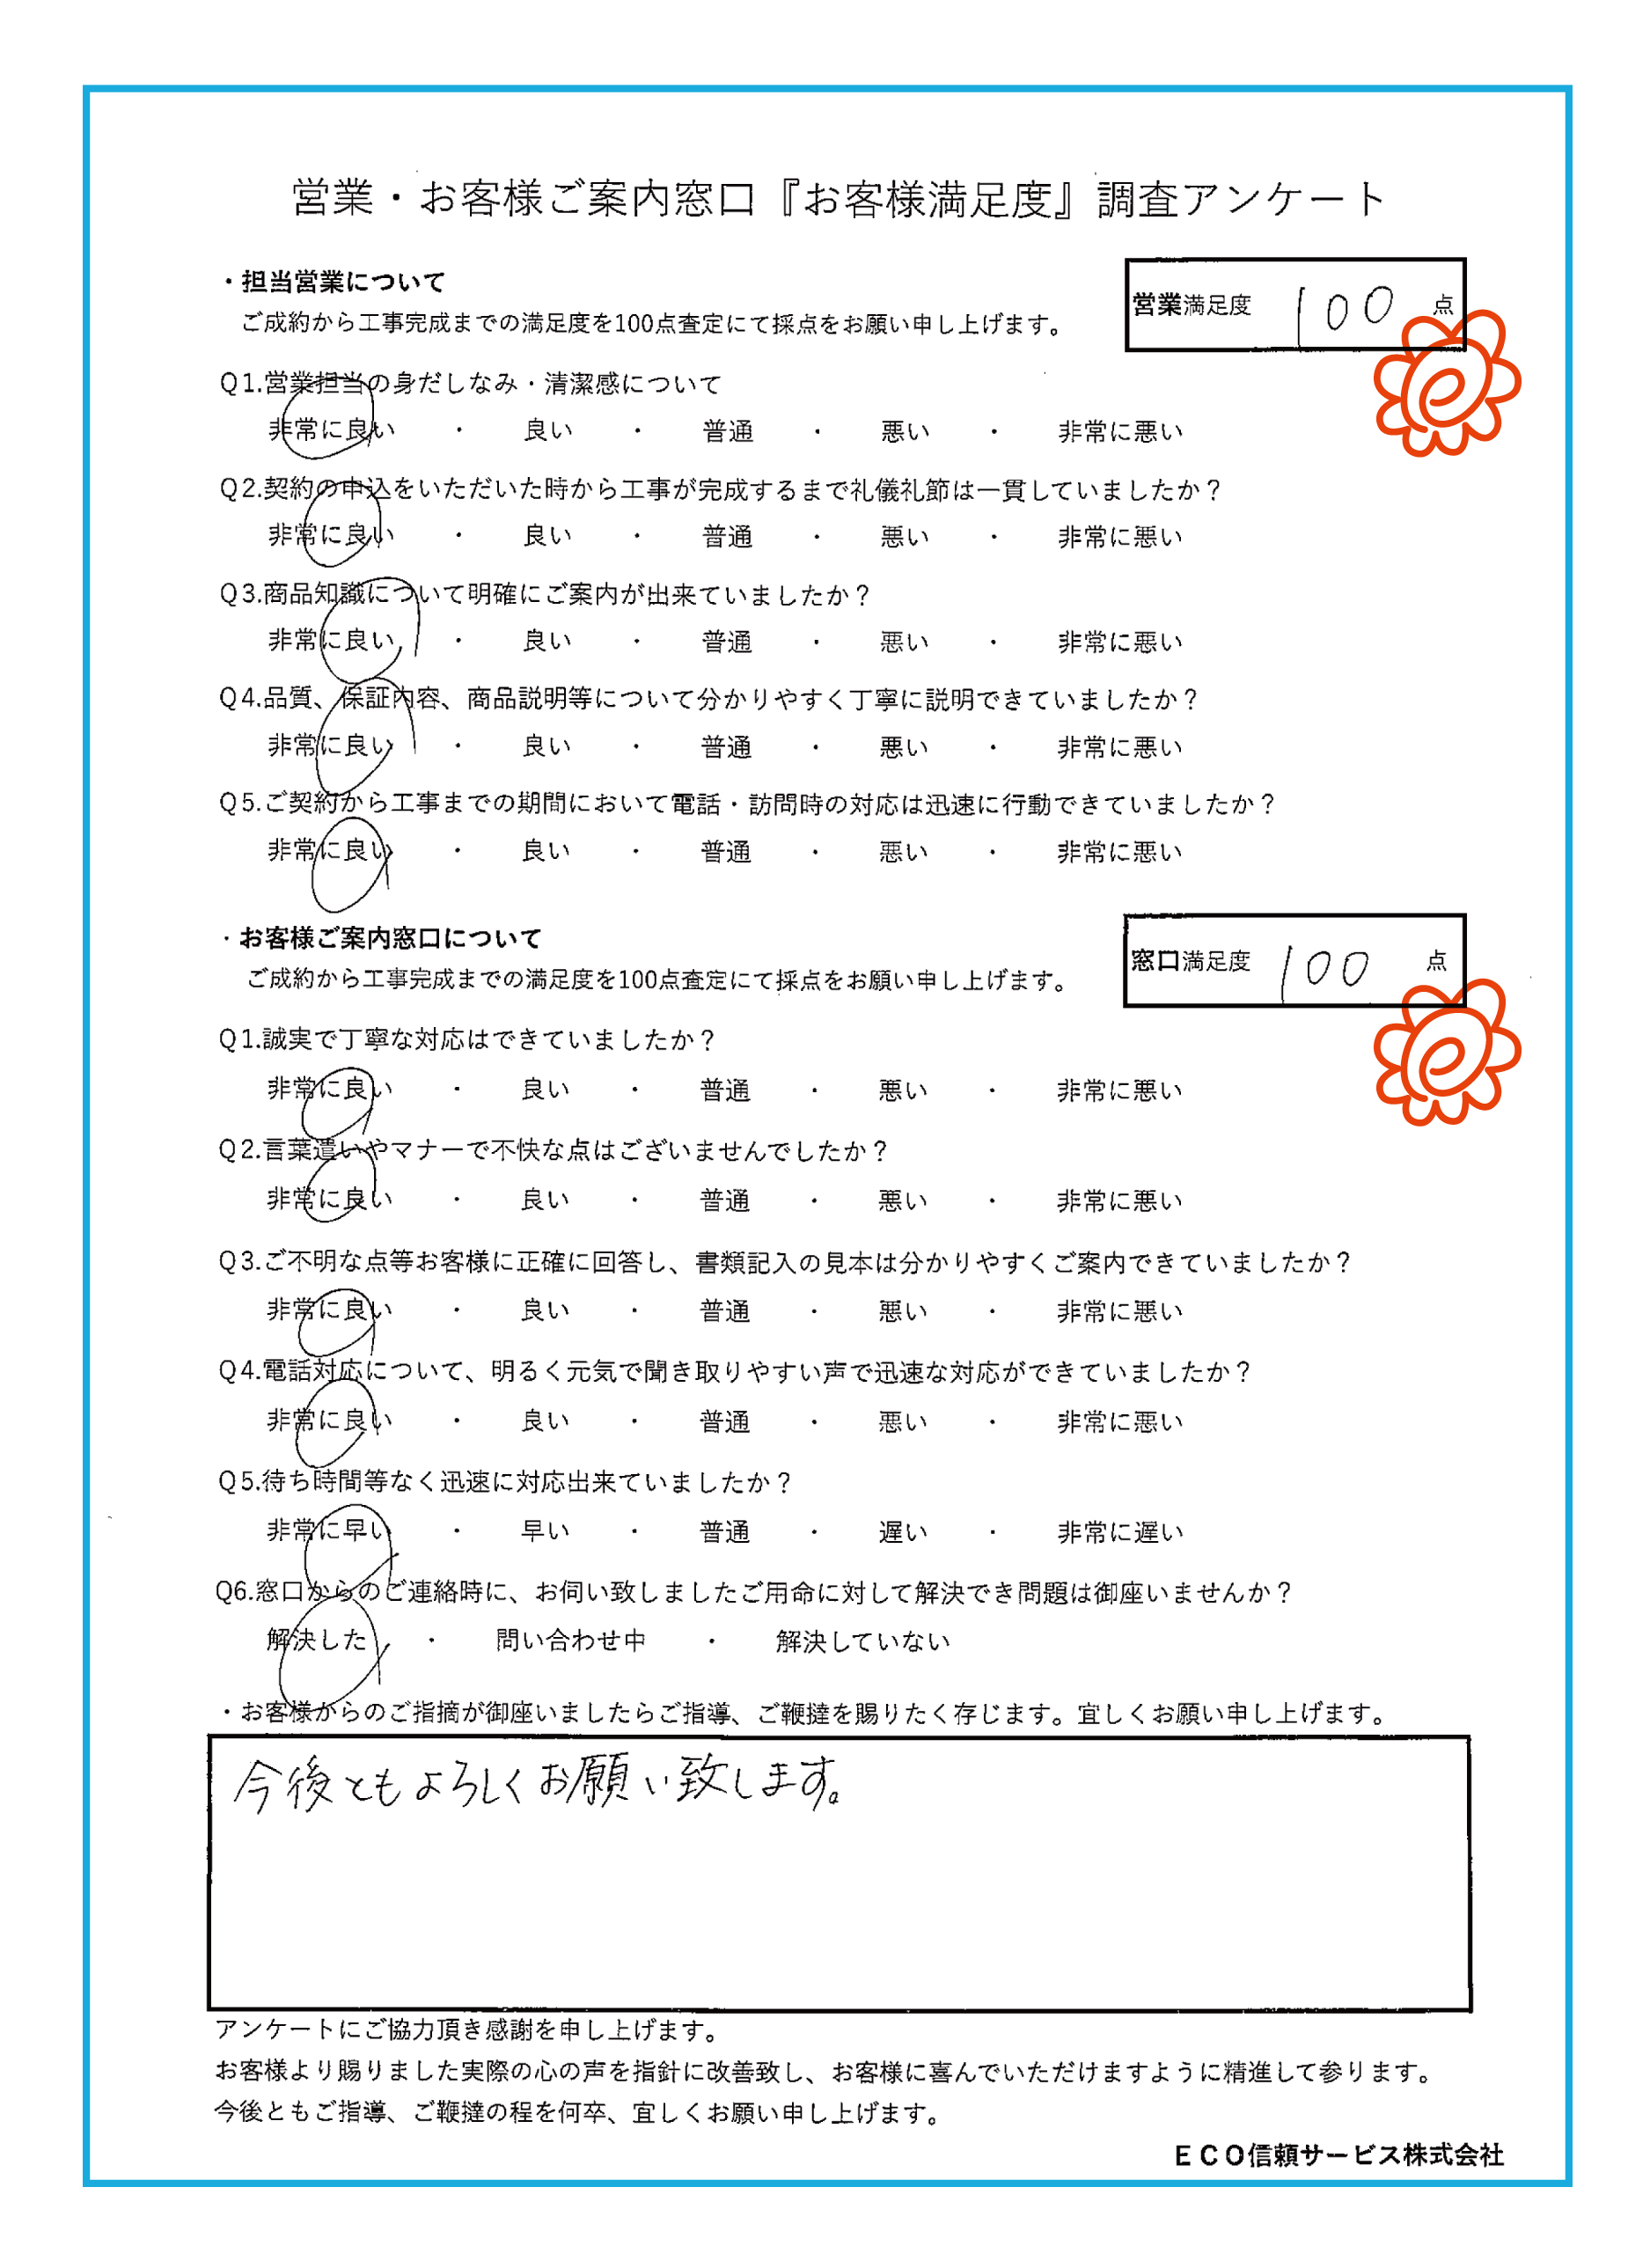 営業・お客様ご案内窓口『お客様満足度』調査アンケート
・担当営業について
ご成約から工事完成までの満足度を100点査定にて採点をお願い申し上げます。
営業満足度 100 点
Q1.営業担当の身だしなみ・清潔感について
非常に良い ・ 良い ・ 普通 ・ 悪い ・ 非常に悪い
Q2.契約の申込をいただいた時から工事が完成するまで礼儀礼節は一貫していましたか？
非常に良い ・ 良い ・ 普通 ・ 悪い ・ 非常に悪い
Q3.商品知識について明確にご案内が出来ていましたか？
非常に良い ・ 良い ・ 普通 ・ 悪い ・ 非常に悪い
Q4.品質、保証内容、商品説明等について分かりやすく丁寧に説明できていましたか？
非常に良い ・ 良い ・ 普通 ・ 悪い ・ 非常に悪い
Q5.ご契約から工事までの期間において電話・訪問時の対応は迅速に行動できていましたか？
非常に良い ・ 良い ・ 普通 ・ 悪い ・ 非常に悪い
・お客様ご案内窓口について
ご成約から工事完成までの満足度を100点査定にて採点をお願い申し上げます。
窓口満足度 100 点
Q1.誠実で丁寧な対応はできていましたか？
非常に良い ・ 良い ・ 普通 ・ 悪い ・ 非常に悪い
Q2.言葉遣いやマナーで不快な点はございませんでしたか？
非常に良い ・ 良い ・ 普通 ・ 悪い ・ 非常に悪い
Q3.ご不明な点等お客様に正確に回答し、書類記入の見本は分かりやすくご案内できていましたか？
非常に良い ・ 良い ・ 普通 ・ 悪い ・ 非常に悪い
Q4.電話対応について、明るく元気で聞き取りやすい声で迅速な対応ができていましたか？
非常に良い ・ 良い ・ 普通 ・ 悪い ・ 非常に悪い
Q5.待ち時間等なく迅速に対応出来ていましたか？
非常に早い ・ 早い ・ 普通 ・ 遅い ・ 非常に遅い
Q6.窓口からのご連絡時に、お伺い致しましたご用命に対して解決でき問題は御座いませんか？
解決した ・ 問い合わせ中 ・ 解決していない
・お客様からのご指摘が御座いましたらご指導、ご鞭撻を賜りたく存じます。宜しくお願い申し上げます。
今後ともよろしくお願い致します。
アンケートにご協力頂き感謝を申し上げます。
お客様より賜りました実際の心の声を指針に改善致し、お客様に喜んでいただけますように精進して参ります。
今後ともご指導、ご鞭撻の程を何卒、宜しくお願い申し上げます。
ＥＣＯ信頼サービス株式会社